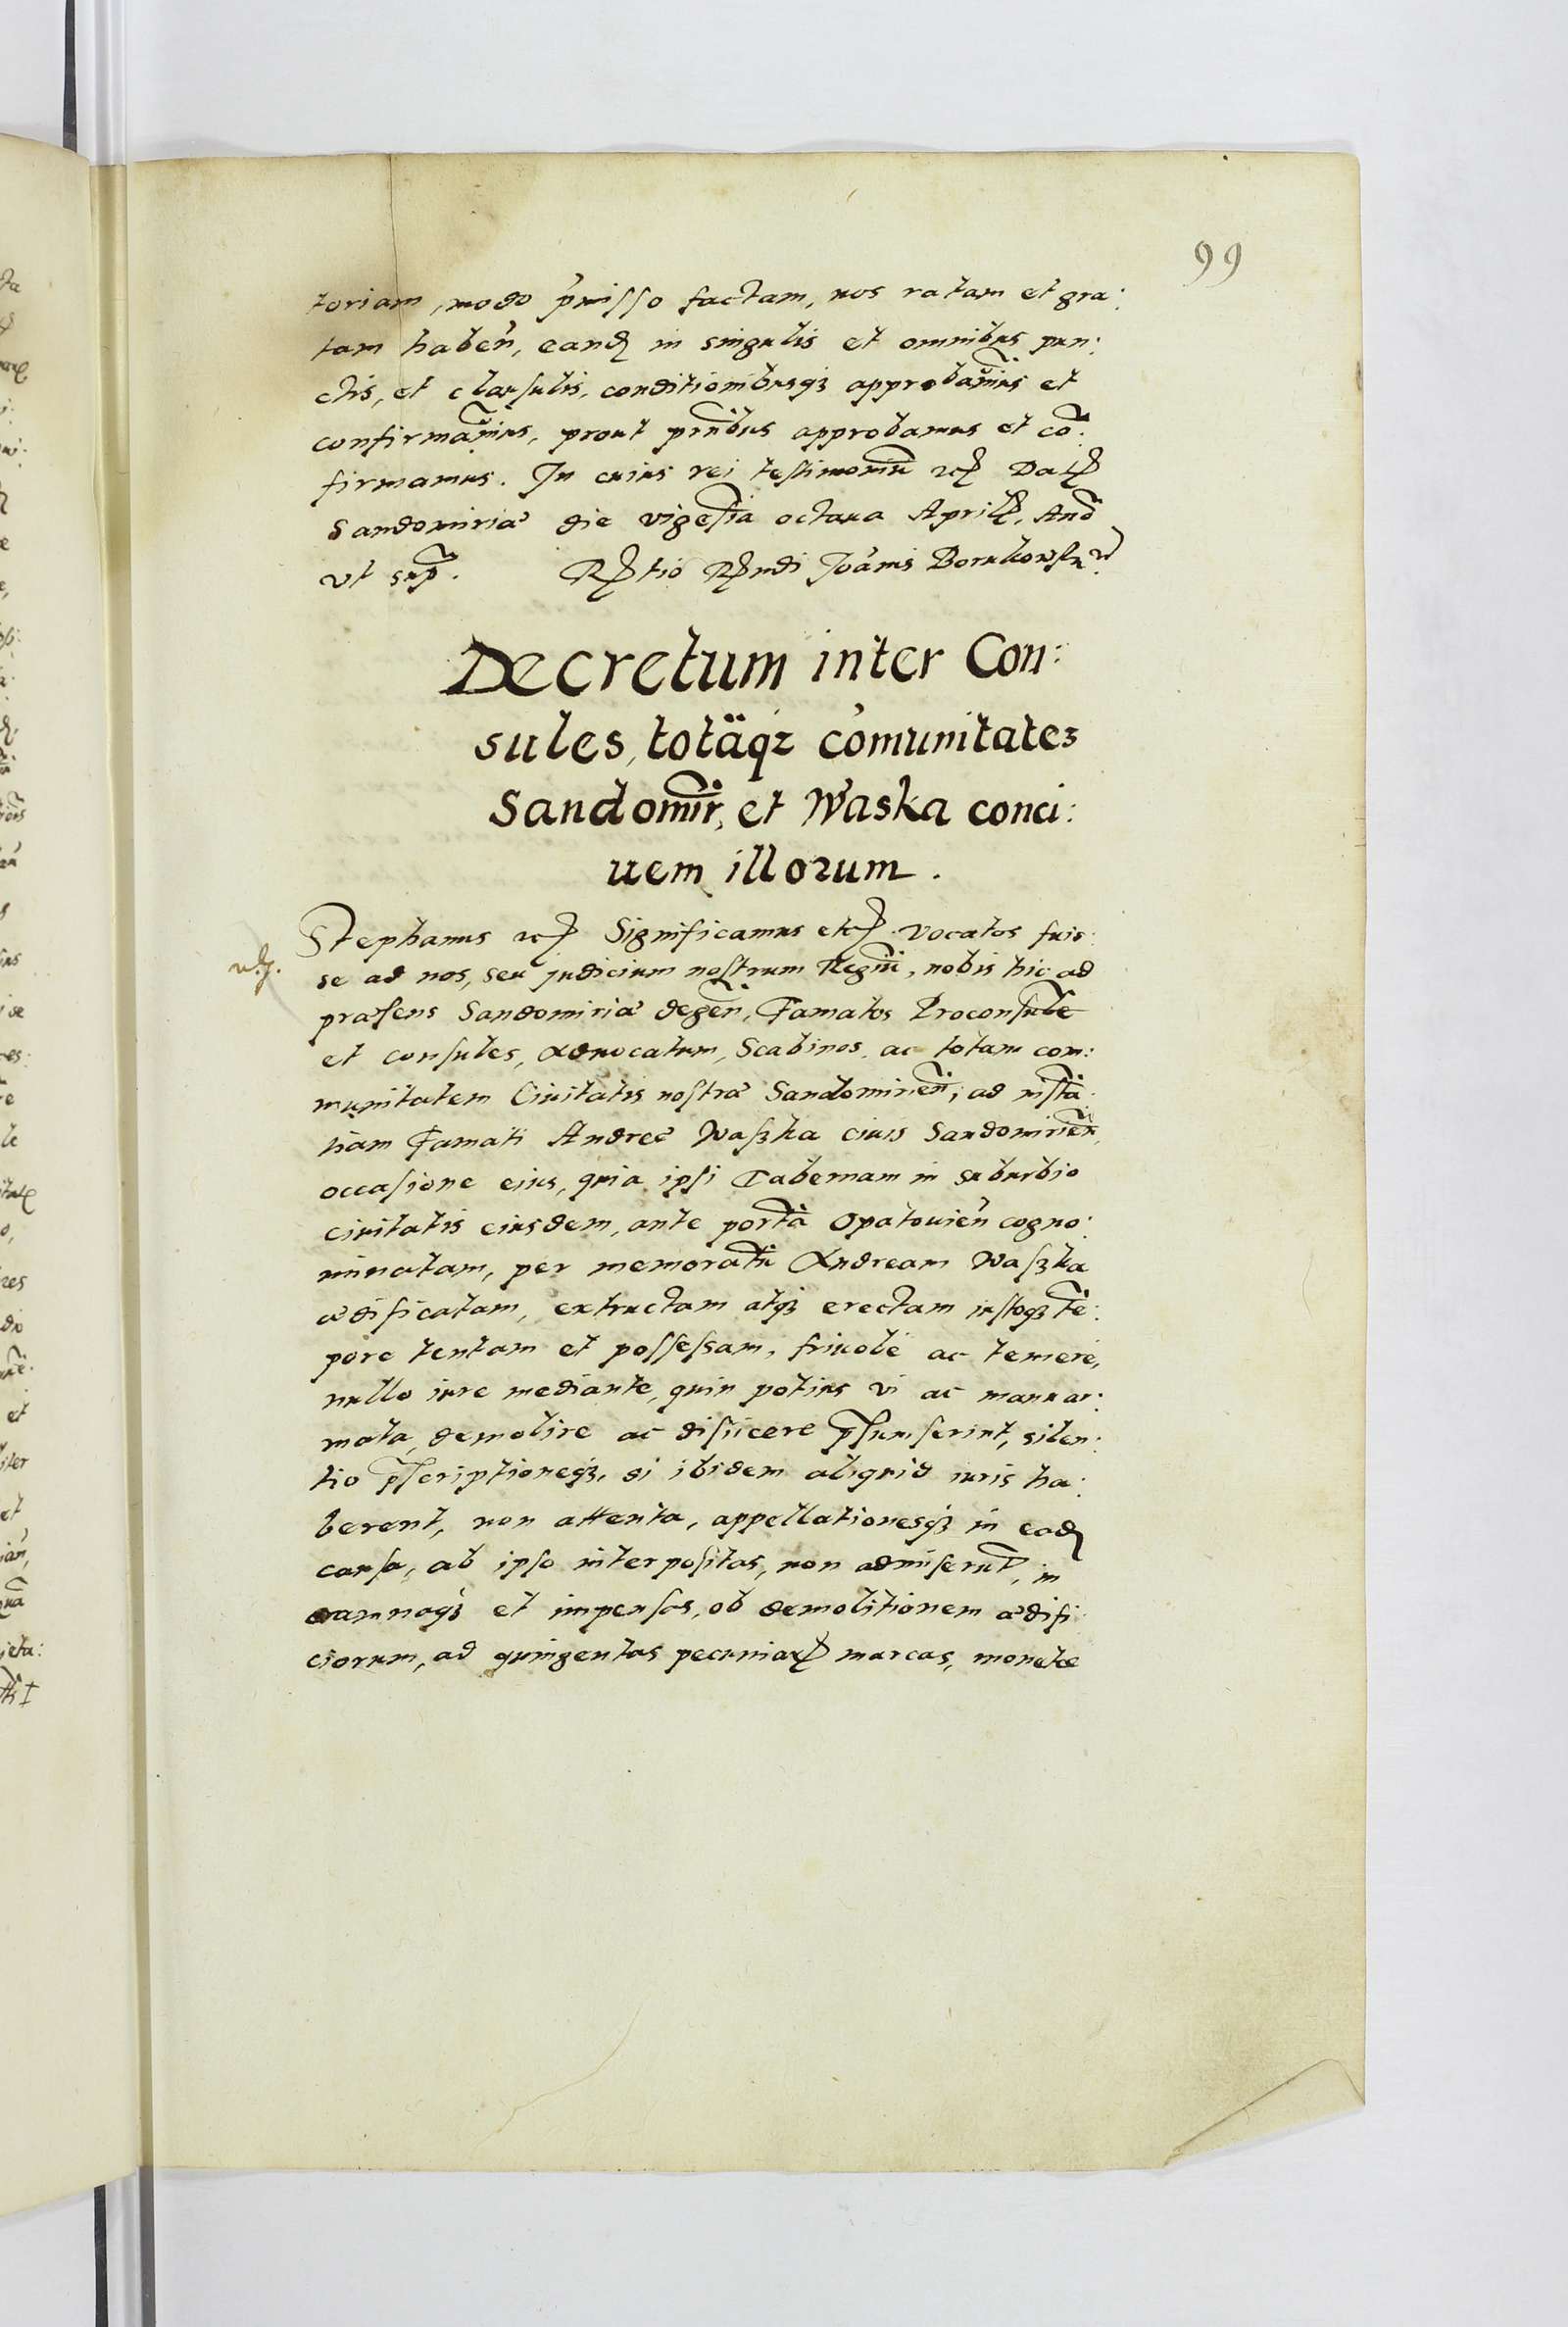 99
toriam, modo p̃misso factam, nos ratam et gra:
tam haben̄, eandẽ in singulis et omnibus pun:
ctis, et clausulis, conditionibusq₃ approbam̃us et
confirmam̃us, prout pñtibus approbamus et cõ:
firmamus. In cuius rei testimoniũ etc̃ Dat̃
Sandomiriæ die vigesĩa octaua April̃, Anõ
vt sup̃. R̃tio R̃ndi Joãnis Borukowsk̃
Decretum inter Con:
sules, totäq₃ cõmunitate₃
Sandomir̃, et Waska conci:
uem illorum.
Stephanus etc̃ Significamus etc̃. vocatos fuis:
se ad nos, seu judicium nostrum Regiũ, nobis hic ad
præsens Sandomiriæ degeñ, Famatos Proconsule
et consules, Aduocatum, Scabinos, ac totam com:
munitatem Ciuitatis nostræ Sandomirieñ, ad instã:
tiam Famati Andreæ Waszka ciuis Sandomirieñ,
occasione eius, quia ipsi Tabernam in suburbio
ciuitatis eiusdem, ante portã Opatouieñ cogno:
minatam, per memoratũ Andream Waszka
ædificatam, extructam atq₃ erectam iustoq₃ tẽ:
pore tentam et possessam, friuole ac temere,
nullo iure mediante, quin potius vi ac manu ar:
mata, demolire ac disiicere p̃sumserint, silen:
tio p̃scriptioneq₃, si ibidem aliquid iuris ha:
berent, non attenta, appellationesq₃ in eadẽ
causa, ab ipso interpositas, non admiserũt, in
damnaq₃ et impensas, ob demolitionem ædifi
ciorum, ad quingentas pecuniar̃ marcas, monetæ